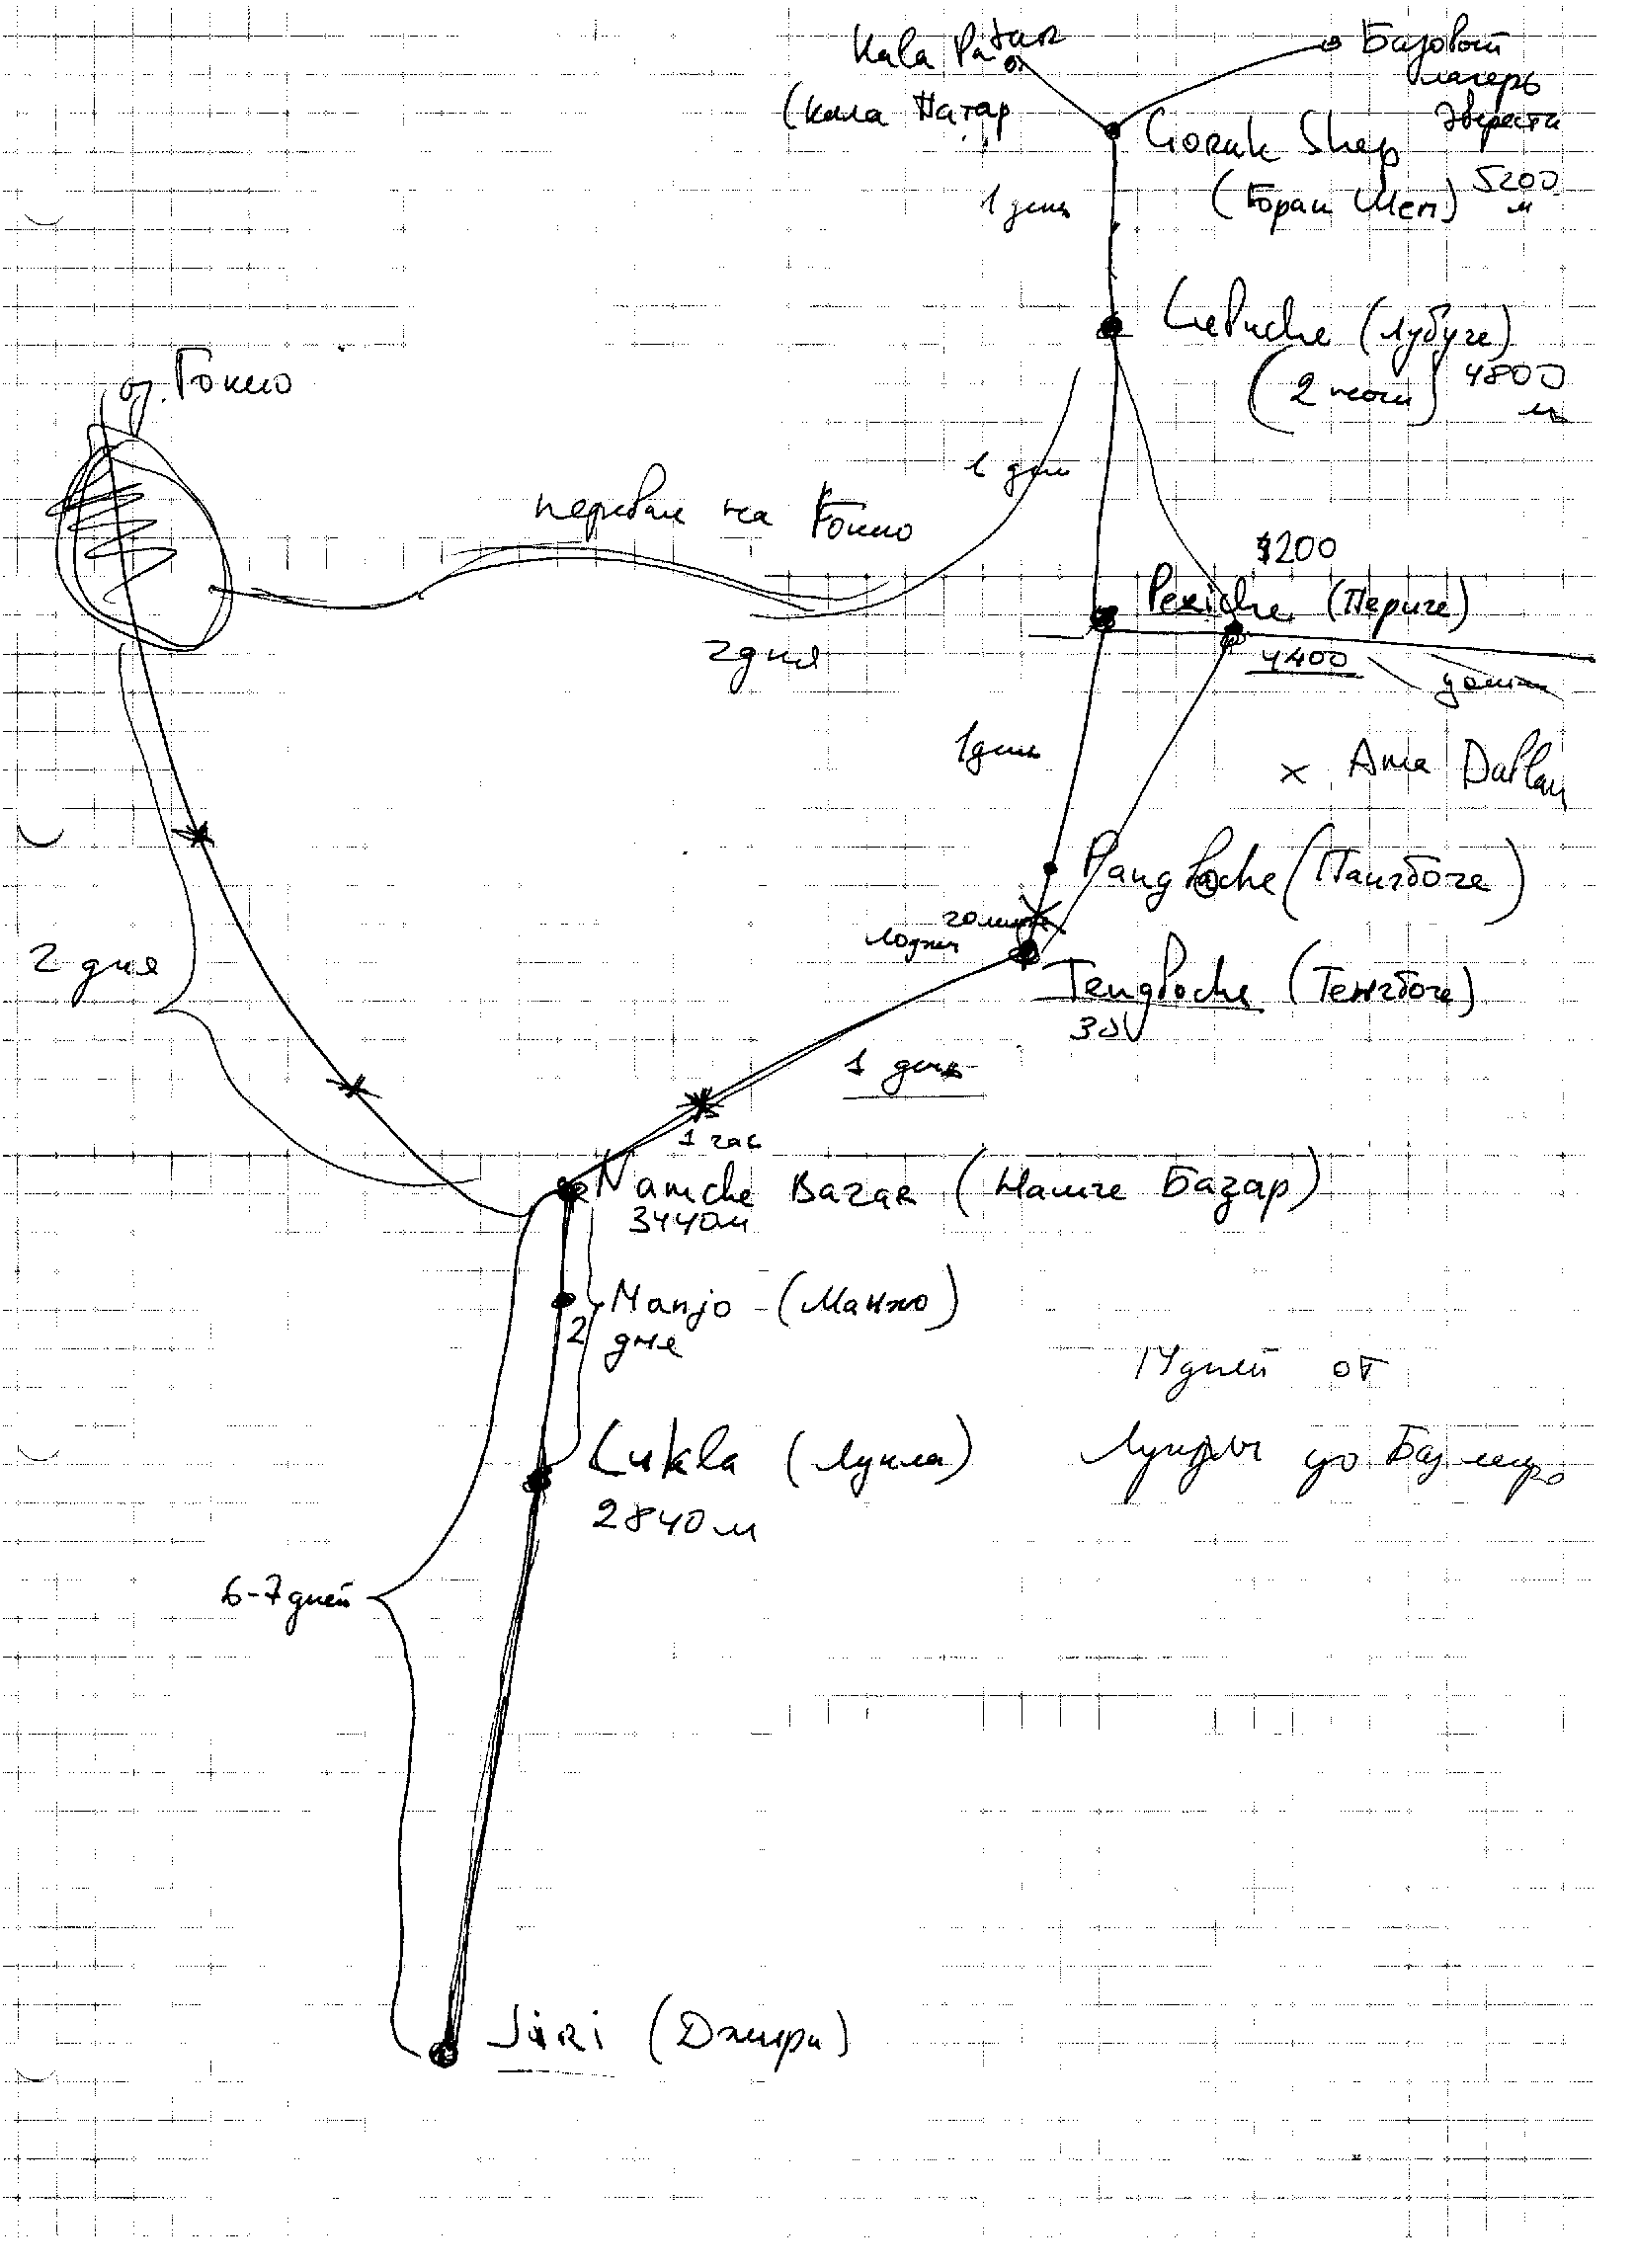 Kala Patar
(Кала Патар
Базовый
лагерь
Эвереста
Gorak Shep
(Горак Шеп)
5200
м
1 день
Lebuche (Лубуче)
(2 ночи)
4800
м
оз. Гокио
1 день
перевал на Гокио
2 дня
$200
Periche (Периче)
4400
1 день
x Ama Dablan
Pangboche (Пангбоче)
лоджи
Tengboche (Тенгбоче)
30V
2 дня
1 день
1 час
Namche Bazar (Намче Базар)
3440м
Manjo - (Манжо)
2
дня
14 дней от
Lukla (Лукла)
2840м
Луклы до Баз лагеря
6-7 дней
Jiri (Джири)